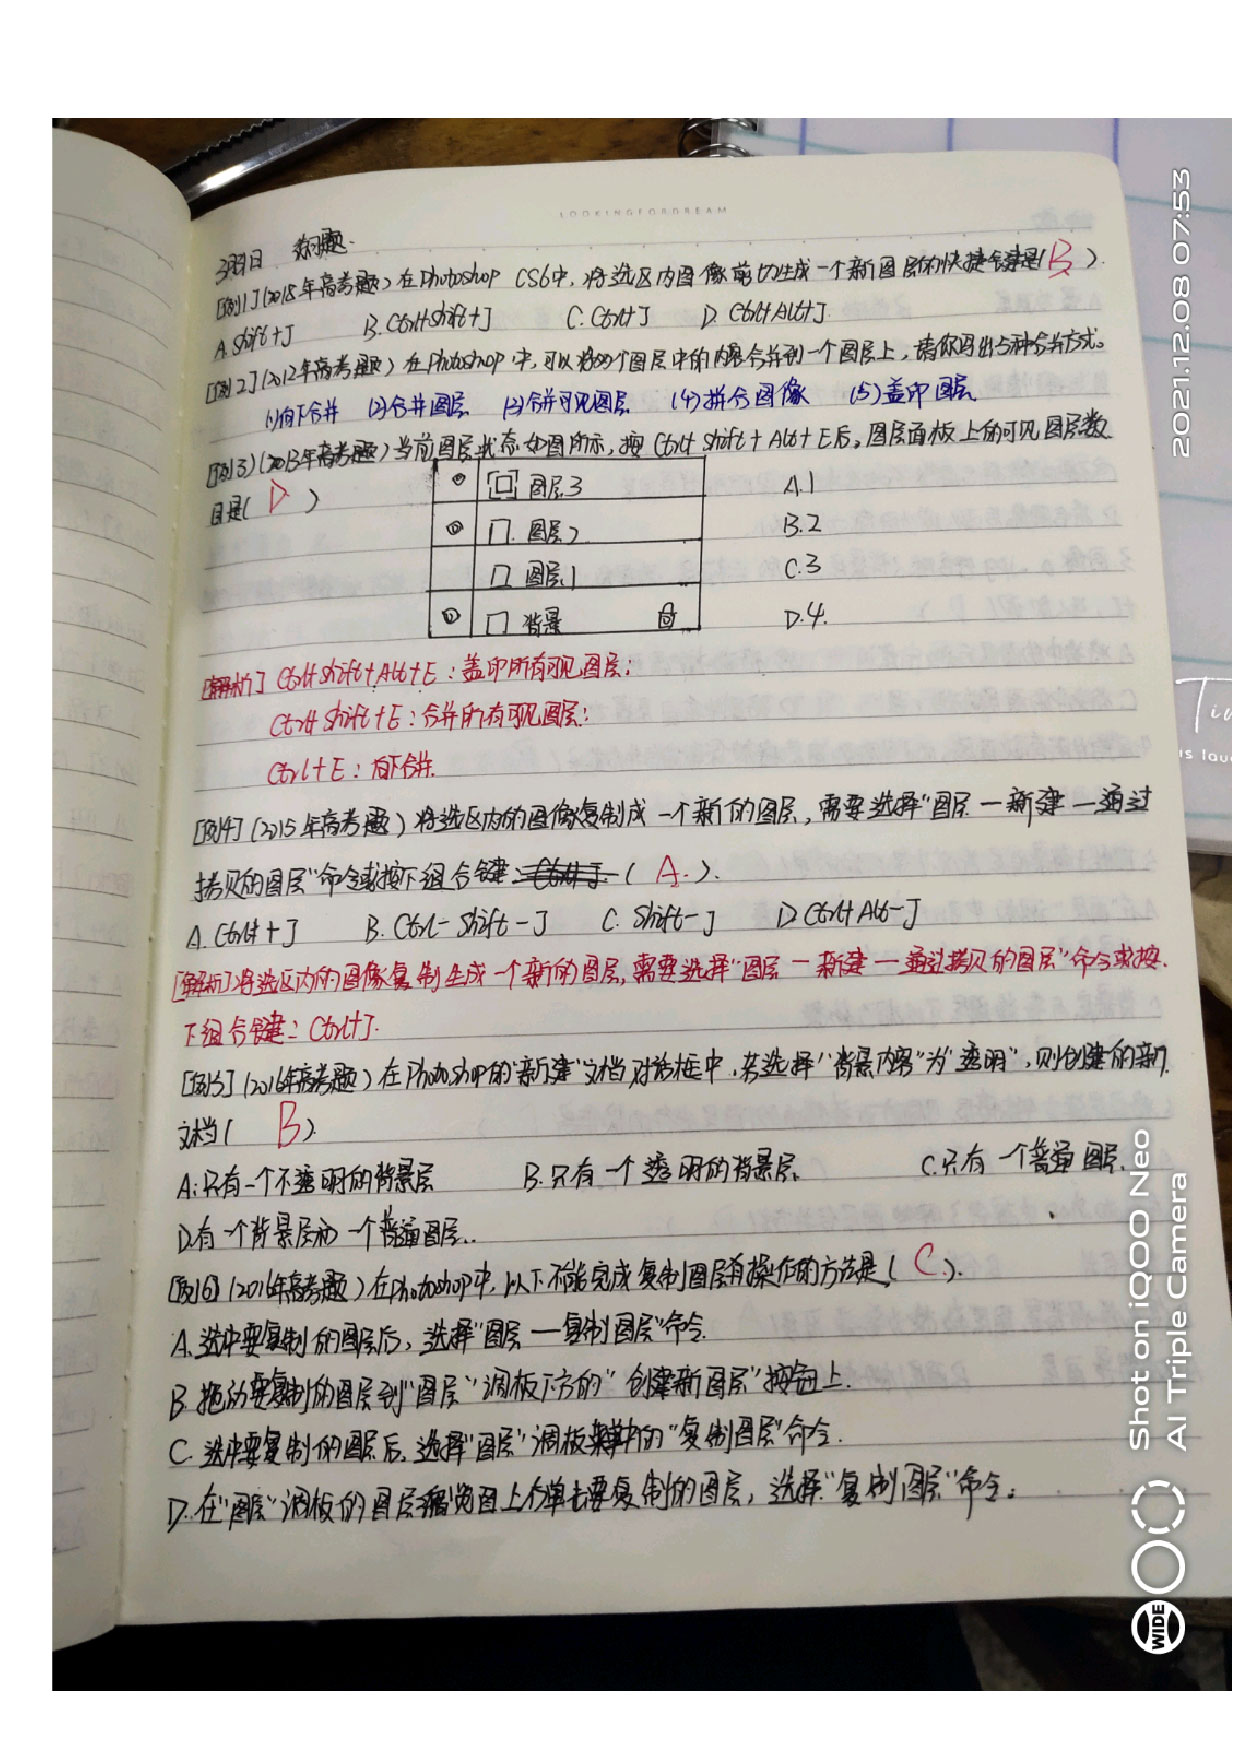 LOOKINGFORDREAM
例题.
[例1](2015年高考题)在Photoshop CS6中,将选区内图像剪切生成一个新图层的快捷键是(B).
A.Shift+J B.Ctrl+Shift+J C.Ctrl+J D.Ctrl+Alt+J.
[例2](2012年高考题)在Photoshop中,可以将两个图层中的内容合并到一个图层上,请你写出5种合并方式。
(1)向下合并 (2)合并图层 (3)合并可见图层 (4)拼合图像 (5)盖印图层
[例3](2013年高考题)当前图层状态如图所示,按Ctrl+Shift+Alt+E后,图层面板上的可见图层数
目是( D )
图层3 A.1
图层2 B.2
图层1 C.3
背景 D.4.
[解析] Ctrl+Shift+Alt+E:盖印所有可见图层;
Ctrl+Shift+E:合并所有可见图层;
Ctrl+E:向下合并.
[例4](2015年高考题)将选区内的图像复制成一个新的图层,需要选择"图层—新建—通过
拷贝的图层"命令或按下组合键:Ctrl+J.(A.).
A.Ctrl+J B.Ctrl-Shift-J C.Shift-J D.Ctrl+Alt-J
[解析]将选区内的图像复制生成一个新的图层,需要选择"图层—新建—通过拷贝的图层"命令或按
下组合键:Ctrl+J.
[例5](2016年高考题)在Photoshop的"新建"文档对话框中,若选择"背景内容"为"透明",则创建的新
文档( B )
A:只有一个不透明的背景层 B.只有一个透明的背景层. C.只有一个普通图层.
D.有一个背景层和一个普通图层..
[例6](2016年高考题)在Photoshop中,以下不能完成复制图层操作的方法是(C).
A.选中要复制的图层后,选择"图层—复制图层"命令.
B.拖动要复制的图层到"图层"调板下方的"创建新图层"按钮上.
C.选中要复制的图层后,选择"图层"调板菜单中的"复制图层"命令.
D.在"图层"调板的图层缩览图上右单击要复制的图层,选择"复制图层"命令。
2021.12.08 07:53
Shot on iQOO Neo
AI Triple Camera
WIDE